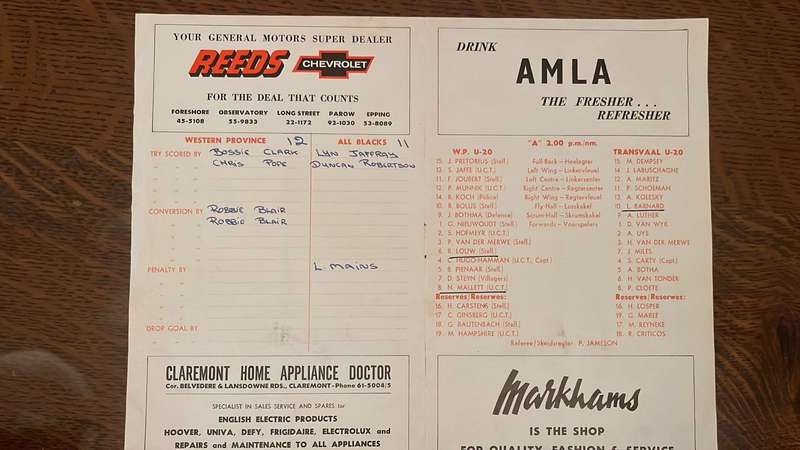 YOUR GENERAL MOTORS SUPER DEALER
REEDS CHEVROLET
FOR THE DEAL THAT COUNTS
FORESHORE OBSERVATORY LONG STREET PAROW EPPING
45-5108 55-9833 22-1172 92-1030 53-8089
WESTERN PROVINCE 12 ALL BLACKS 11
TRY SCORED BY BOSSIE CLARK LYN JAFFRAY
CHRIS POPE DUNCAN ROBERTSON
CONVERSION BY ROBBIE BLAIR
ROBBIE BLAIR
PENALTY BY L. MAINS
DROP GOAL BY
CLAREMONT HOME APPLIANCE DOCTOR
Cor. BELVEDERE & LANSDOWNE RDS., CLAREMONT-Phone 61-5004/5
SPECIALIST IN SALES SERVICE AND SPARES for
ENGLISH ELECTRIC PRODUCTS
HOOVER, UNIVA, DEFY, FRIGIDAIRE, ELECTROLUX and
REPAIRS and MAINTENANCE TO ALL APPLIANCES
DRINK
AMLA
THE FRESHER...
REFRESHER
"A" 2.00 p.m/nm.
W.P. U-20 TRANSVAAL U-20
15. J. PRETORIUS (Stell.) Full-Back — Heelagter 15. M. DEMPSEY
13. S. JAFFE (U.C.T.) Left Wing — Linkervleuel 14. J. LABUSCHAGNE
11. F. JOUBERT (Stell.) Left Centre — Linkersenter 12. A. MARITZ
12. P. MUNNIK (U.C.T.) Right Centre — Regtersenter 11. P. SCHOEMAN
14. R. KOCH (Police) Right Wing — Regtervleuel 13. A. KOLESKY
10. R. BOLUS (Stell.) Fly Half — Losskakel 10. L. BARNARD
9. J. BOTHMA (Defense) Scrum-Half — Skrumskakel 9. A. LUTHER
1. G. NIEUWOUDT (Stell.) Forwards — Voorspelers 1. D. VAN WYK
2. S. HOFMEYR (U.C.T.) 2. A. UYS
3. P. VAN DER MERWE (Stell.) 3. H. VAN DER MERWE
6. R. LOUW (Stell.) 7. J. MILES
4. C. HUGO-HAMMAN (U.C.T., Capt) 4. S. CARTY (Capt)
5. B. PIENAAR (Stell.) 5. A. BOTHA
7. D. STEYN (Villagers) 6. H. VAN TONDER
8. N. MALLETT (U.C.T.) 8. P. CLOETE
Reserves/Reserwes: Reserves/Reserwes:
16. H. CARSTENS (Stell.) 16. H. LOSPER
17. C. GINSBERG (U.C.T.) 19. G. MAREE
18. G. RAUTENBACH (Stell.) 17. M. REYNEKE
19. M. HAMPSHIRE (U.C.T.) 18. R. CRITICOS
Referee/Skeidsregter: P. JAMESON
Markhams
IS THE SHOP
FOR QUALITY, FASHION & SERVICE